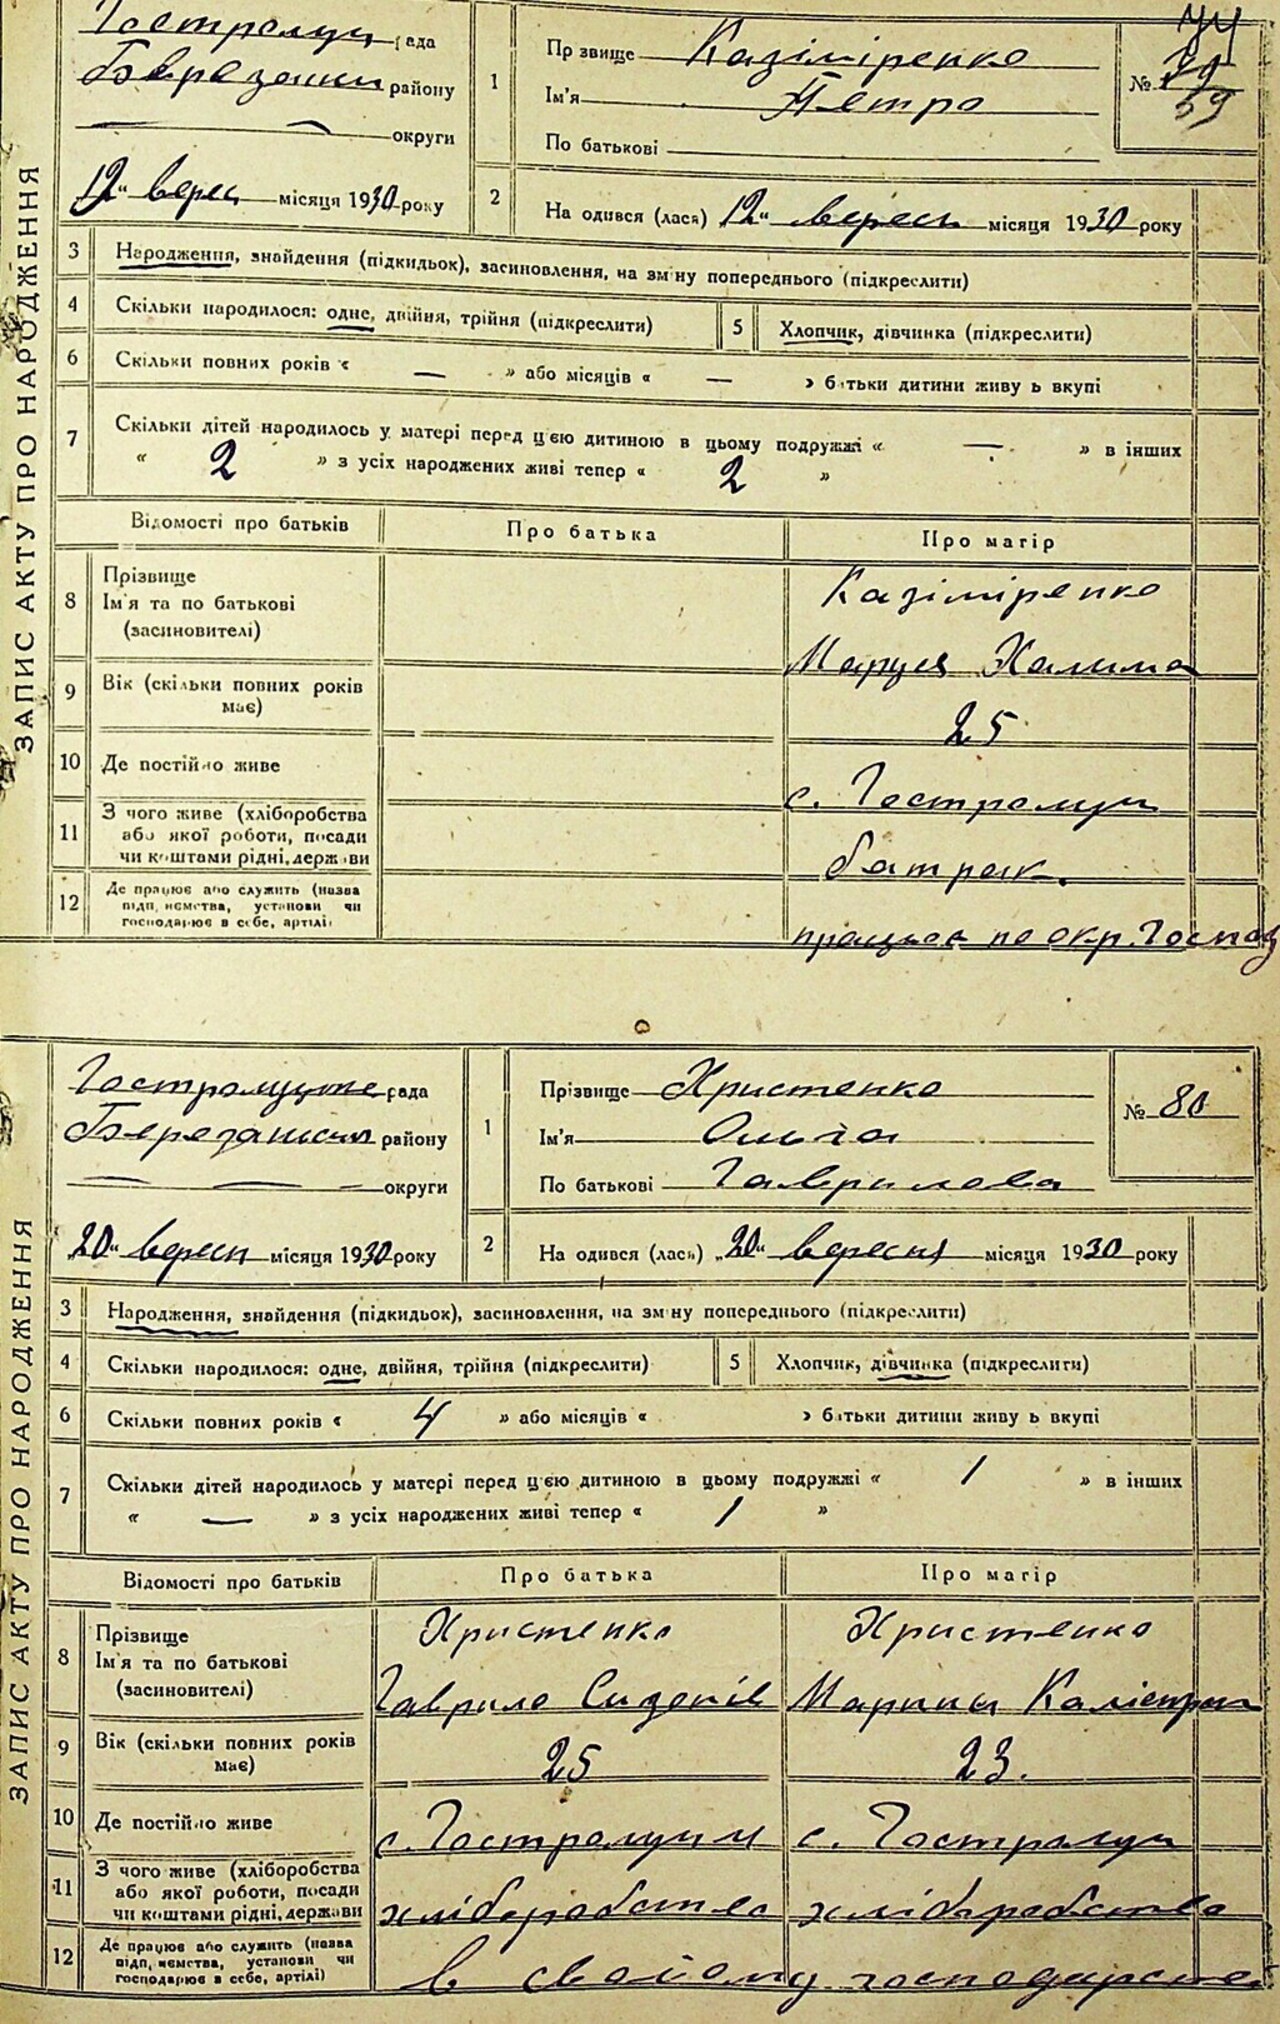 ЗАПИС АКТУ ПРО НАРОДЖЕННЯ
Гостролуц рада
Березанки району
округи
12" верес місяця 1930 року
1 Прізвище Казіміренко
Ім'я Петро
По батькові
№ 79
59
2 На одився (лася) 12" вересн місяця 1930 року
3 Народження, знайдення (підкидьок), засиновлення, на зміну попереднього (підкреслити)
4 Скільки народилося: одне, двійня, трійня (підкреслити) 5 Хлопчик, дівчинка (підкреслити)
6 Скільки повних років « — » або місяців « — » батьки дитини живуть вкупі
7 Скільки дітей народилось у матері перед цією дитиною в цьому подружжі « — » в інших
« 2 » з усіх народжених живі тепер « 2 »
Відомості про батьків Про батька Про матір
8 Прізвище
Ім'я та по батькові
(засиновителі)
Казіміренко
Маруся
9 Вік (скільки повних років має)
25
10 Де постійно живе
с. Гостролуч
11 З чого живе (хліборобства
або якої роботи, посади
чи коштами рідні, держави
батрак.
12 Де працює або служить (назва
підприємства, установи чи
господарює в себе, артілі)
працює по окр. Господ
ЗАПИС АКТУ ПРО НАРОДЖЕННЯ
Гостролуцьке рада
Березанськ району
округи
„20" вересн місяця 1930 року
1 Прізвище Христенко
Ім'я Ольга
По батькові Гаврилова
№ 80
2 На одився (лася) „20" вересня місяця 1930 року
3 Народження, знайдення (підкидьок), засиновлення, на зміну попереднього (підкреслити)
4 Скільки народилося: одне, двійня, трійня (підкреслити) 5 Хлопчик, дівчинка (підкреслити)
6 Скільки повних років « 4 » або місяців « » батьки дитини живуть вкупі
7 Скільки дітей народилось у матері перед цією дитиною в цьому подружжі « 1 » в інших
« — » з усіх народжених живі тепер « 1 »
Відомості про батьків Про батька Про матір
8 Прізвище
Ім'я та по батькові
(засиновителі)
Христенко Христенко
Гаврило Сидорів Марина Калістрат
9 Вік (скільки повних років має)
25 23.
10 Де постійно живе
с. Гостролуччи с. Гостролуч
11 З чого живе (хліборобства
або якої роботи, посади
чи коштами рідні, держави
хліборобство хліборобство
12 Де працює або служить (назва
підприємства, установи чи
господарює в себе, артілі)
в своєму господарстві